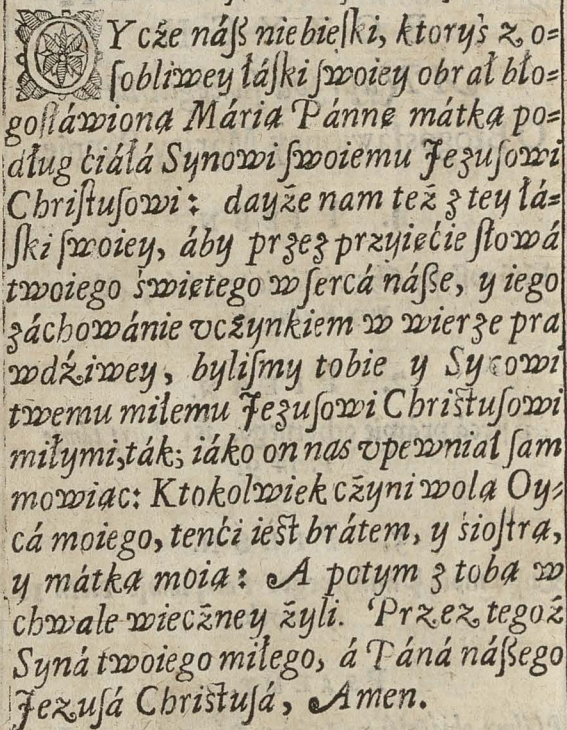 OYcże náß niebieſki, ktoryś z o=
ſobliwey łáſki ſwoiey obrał bło=
goſłáwioną Mária Pánnę mátką po=
dług ćiáłá Synowi ſwoiemu Jezuſowi
Chriſtuſowi: dayże nam też z tey łá=
ſki ſwoiey, áby przez przyięćie ſłowá
twoiego świętego w ſercá náße, y iego
záchowánie vczynkiem w wierze pra
wdźiwey, byliſmy tobie y Synowi
twemu miłemu Jezuſowi Chriſtuſowi
miłymi, ták; iáko on nas vpewniał ſam
mowiąc: Ktokolwiek czyni wolą Oy=
cá moiego, tenći ieſt brátem, y śioſtrą,
y mátką moią: A potym z tobą w
chwale wieczney żyli. Przez tegoż
Syná twoiego miłego, á Páná náßego
Jezuſá Chriſtuſá, Amen.